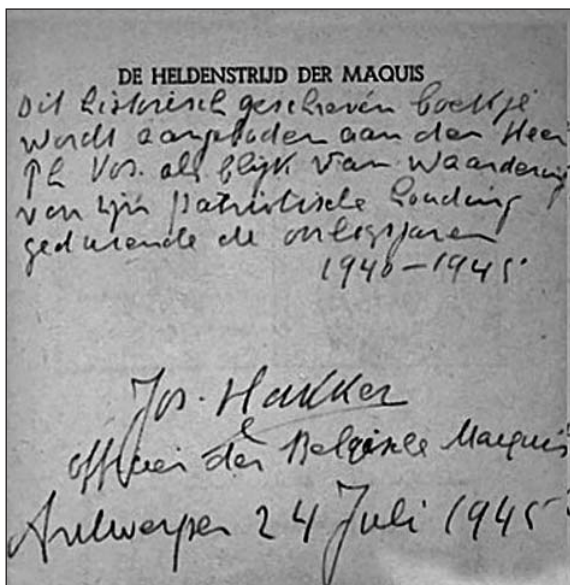 DE HELDENSTRIJD DER MAQUIS
Dit historisch geschreven boekje
wordt aangeboden aan den Heer
Ph Vos. als blijk van waardering
van zijn patriotische houding
gedurende de oorlogsjaren
1940-1945
Jos. Hakker
officier der Belgische Maquis
Antwerpen 24 Juli 1945